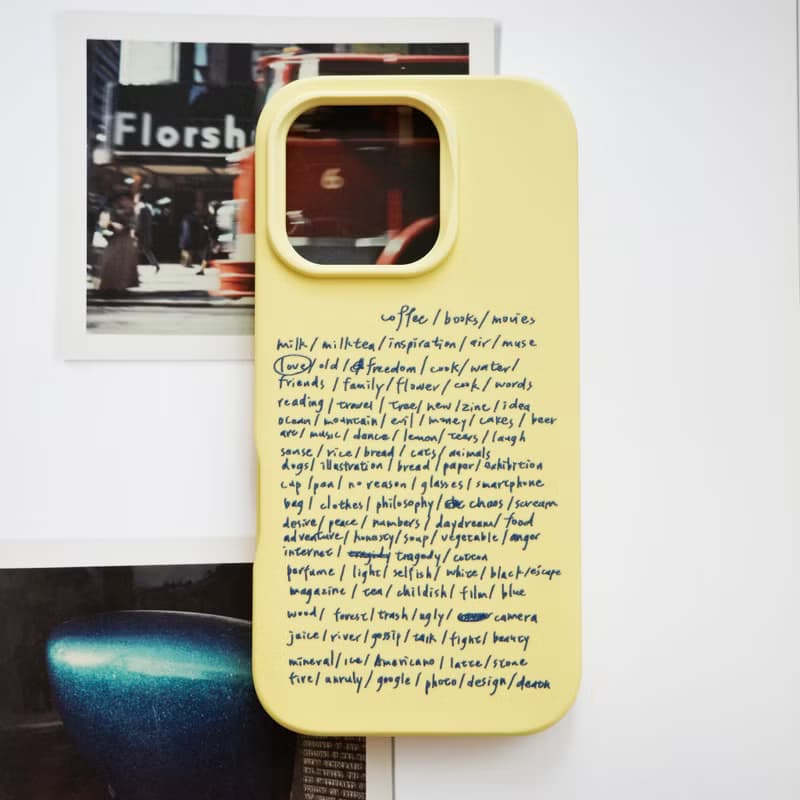 Florsh
6
coffee / books / movies
milk / milktea / inspiration / air / muse
love / old / freedom / cook / water /
friends / family / flower / cook / words
reading / travel / tree / new / zine / idea
ocean / mountain / evil / money / cakes / beer
art / music / dance / lemon / tears / laugh
sense / rice / bread / cats / animals
dogs / illustration / bread / paper / exhibition
cup / pan / no reason / glasses / smartphone
bag / clothes / philosophy / chaos / scream
desire / peace / numbers / daydream / food
adventure / honesty / soup / vegetable / anger
internet / tragedy / cotton
perfume / light / selfish / white / black / escape
magazine / tea / childish / film / blue
wood / forest / trash / ugly / camera
juice / river / gossip / talk / fight / beauty
mineral / ice / Americano / latte / stone
fire / unruly / google / photo / design / death